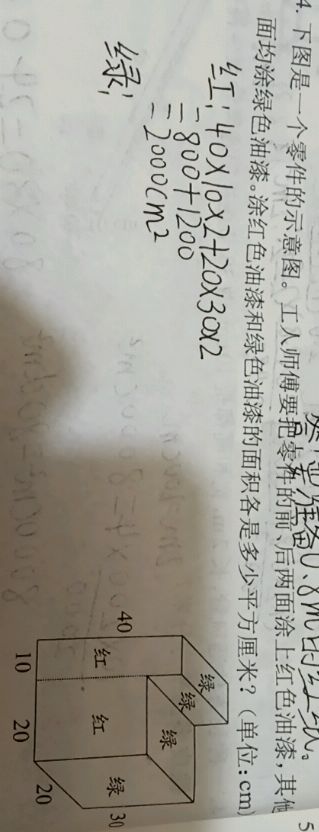 4. 下图是一个零件的示意图。工人师傅要把零件的前、后两面涂上红色油漆,其他
面均涂绿色油漆。涂红色油漆和绿色油漆的面积各是多少平方厘米?(单位:cm)
红: 40×10×2+20×30×2
=800+1200
=2000cm²
绿:
绿
绿
绿
红
红
绿
40
10
20
20
30
5